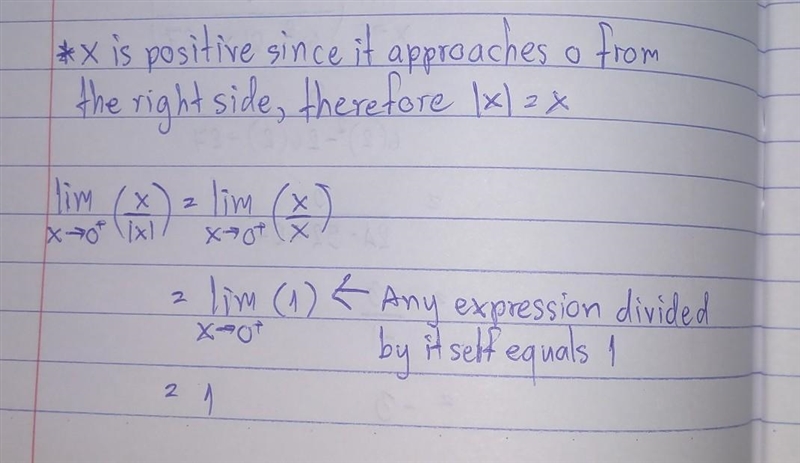 *x is positive since it approaches 0 from
the right side, therefore |x| = x
lim x→0⁺ (x/|x|) = lim x→0⁺ (x/x)
= lim x→0⁺ (1) ← Any expression divided
by itself equals 1
= 1